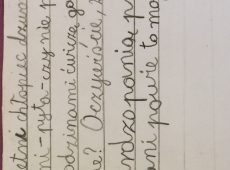 etni chłopiec dzwon
ni - pyta - czy nie p
odzinami ćwiczę ga
e? Oczywiście, z
rdzo panią p
ani powie to mo